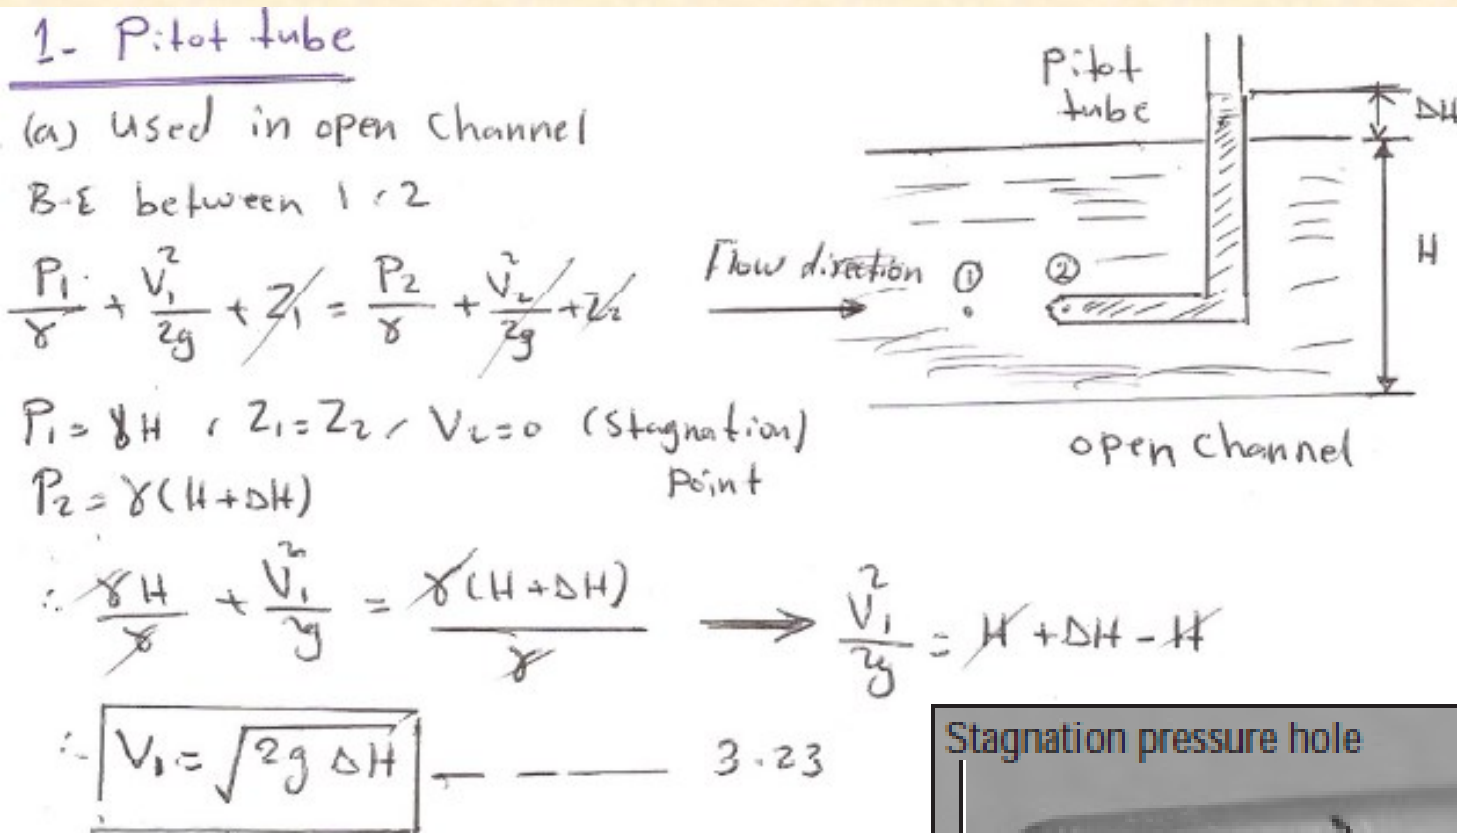 1- Pitot tube
(a) Used in open Channel
B-E between 1 , 2
P₁/γ + V₁²/2g + Z₁ = P₂/γ + V₂²/2g + Z₂
P₁ = γH , Z₁ = Z₂ , V₂ = 0 (Stagnation)
Point
P₂ = γ(H+ΔH)
∴ γH/γ + V₁²/2g = γ(H+ΔH)/γ → V₁²/2g = H + ΔH - H
∴ V₁ = √(2g ΔH) 3.23
Pitot
tube
ΔH
H
Flow direction
①
②
open Channel
Stagnation pressure hole